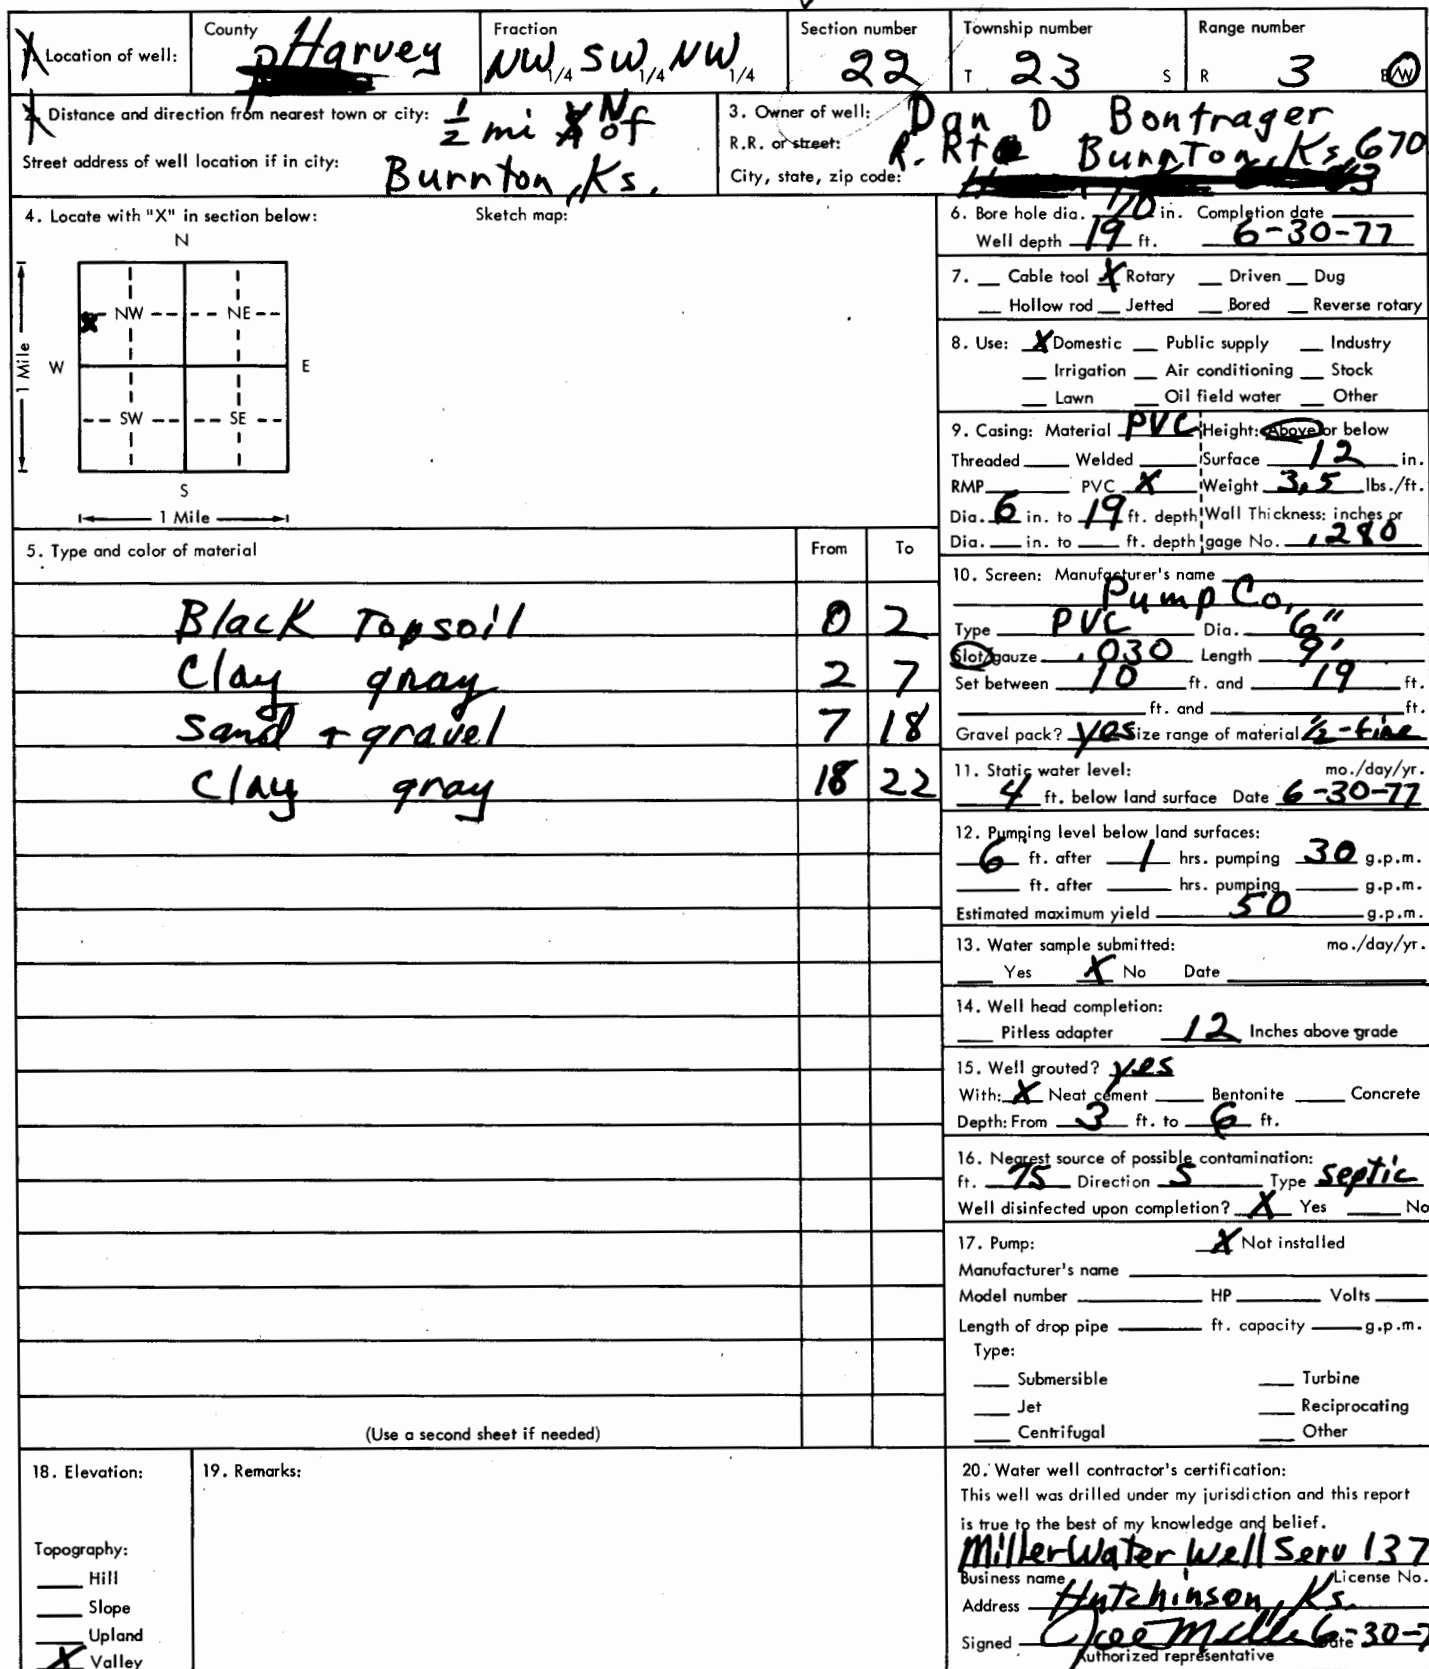 Location of well: County Harvey Fraction NW 1/4 SW 1/4 NW 1/4 Section number 22 Township number T 23 S Range number R 3 E/W
2. Distance and direction from nearest town or city: 1/2 mi N of
Street address of well location if in city: Burnton, Ks.
3. Owner of well: Dan D Bontrager
R.R. or street: R. Rt Burnton, Ks, 670
City, state, zip code:
4. Locate with "X" in section below: Sketch map:
N
NW NE
W E
1 Mile
SW SE
S
1 Mile
5. Type and color of material From To
Black Topsoil 0 2
Clay gray 2 7
Sand + gravel 7 18
Clay gray 18 22
(Use a second sheet if needed)
6. Bore hole dia. in. Completion date
Well depth 19 ft. 6-30-77
7. Cable tool X Rotary Driven Dug
Hollow rod Jetted Bored Reverse rotary
8. Use: X Domestic Public supply Industry
Irrigation Air conditioning Stock
Lawn Oil field water Other
9. Casing: Material PVC Height: Above or below
Threaded Welded Surface 12 in.
RMP PVC X Weight 3.5 lbs./ft.
Dia. 6 in. to 19 ft. depth Wall Thickness: inches or
Dia. in. to ft. depth gage No. .280
10. Screen: Manufacturer's name
Pump Co,
Type PVC Dia. 6"
Slot/gauze .030 Length 9'
Set between 10 ft. and 19 ft.
ft. and ft.
Gravel pack? yes Size range of material 1/2-fine
11. Static water level: mo./day/yr.
4 ft. below land surface Date 6-30-77
12. Pumping level below land surfaces:
6 ft. after 1 hrs. pumping 30 g.p.m.
ft. after hrs. pumping g.p.m.
Estimated maximum yield 50 g.p.m.
13. Water sample submitted: mo./day/yr.
Yes X No Date
14. Well head completion:
Pitless adapter 12 Inches above grade
15. Well grouted? yes
With: X Neat cement Bentonite Concrete
Depth: From 3 ft. to 6 ft.
16. Nearest source of possible contamination:
ft. 75 Direction S Type septic
Well disinfected upon completion? X Yes No
17. Pump: X Not installed
Manufacturer's name
Model number HP Volts
Length of drop pipe ft. capacity g.p.m.
Type:
Submersible Turbine
Jet Reciprocating
Centrifugal Other
18. Elevation:
Topography:
Hill
Slope
Upland
X Valley
19. Remarks:
20. Water well contractor's certification:
This well was drilled under my jurisdiction and this report
is true to the best of my knowledge and belief.
Miller Water Well Serv 137
Business name License No.
Address Hutchinson, Ks.
Signed Joe Miller Date 6-30-7
Authorized representative